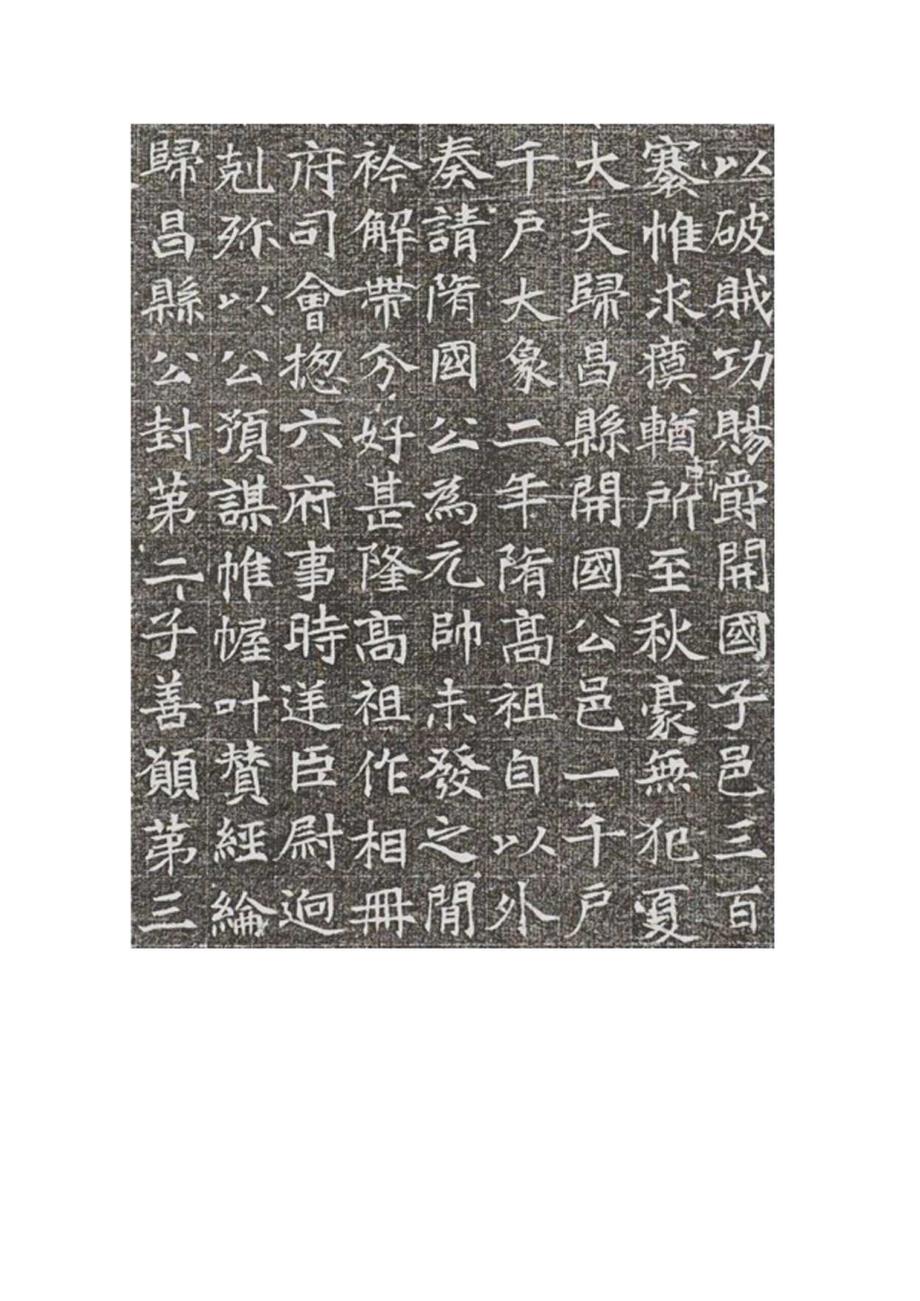 以破賊功賜爵開國子邑三百
褰帷求瘼輶軒所至秋豪無犯夏
大夫歸昌縣開國公邑一千戶
千戶大象二年隋髙祖自以外
奏請隋國公為元帥未發之間
衿解帶分好甚隆髙祖作相冊
府司會揔六府事時逆臣尉迥
剋弥以公預謀帷幄叶賛經綸
歸昌縣公封第二子善願第三